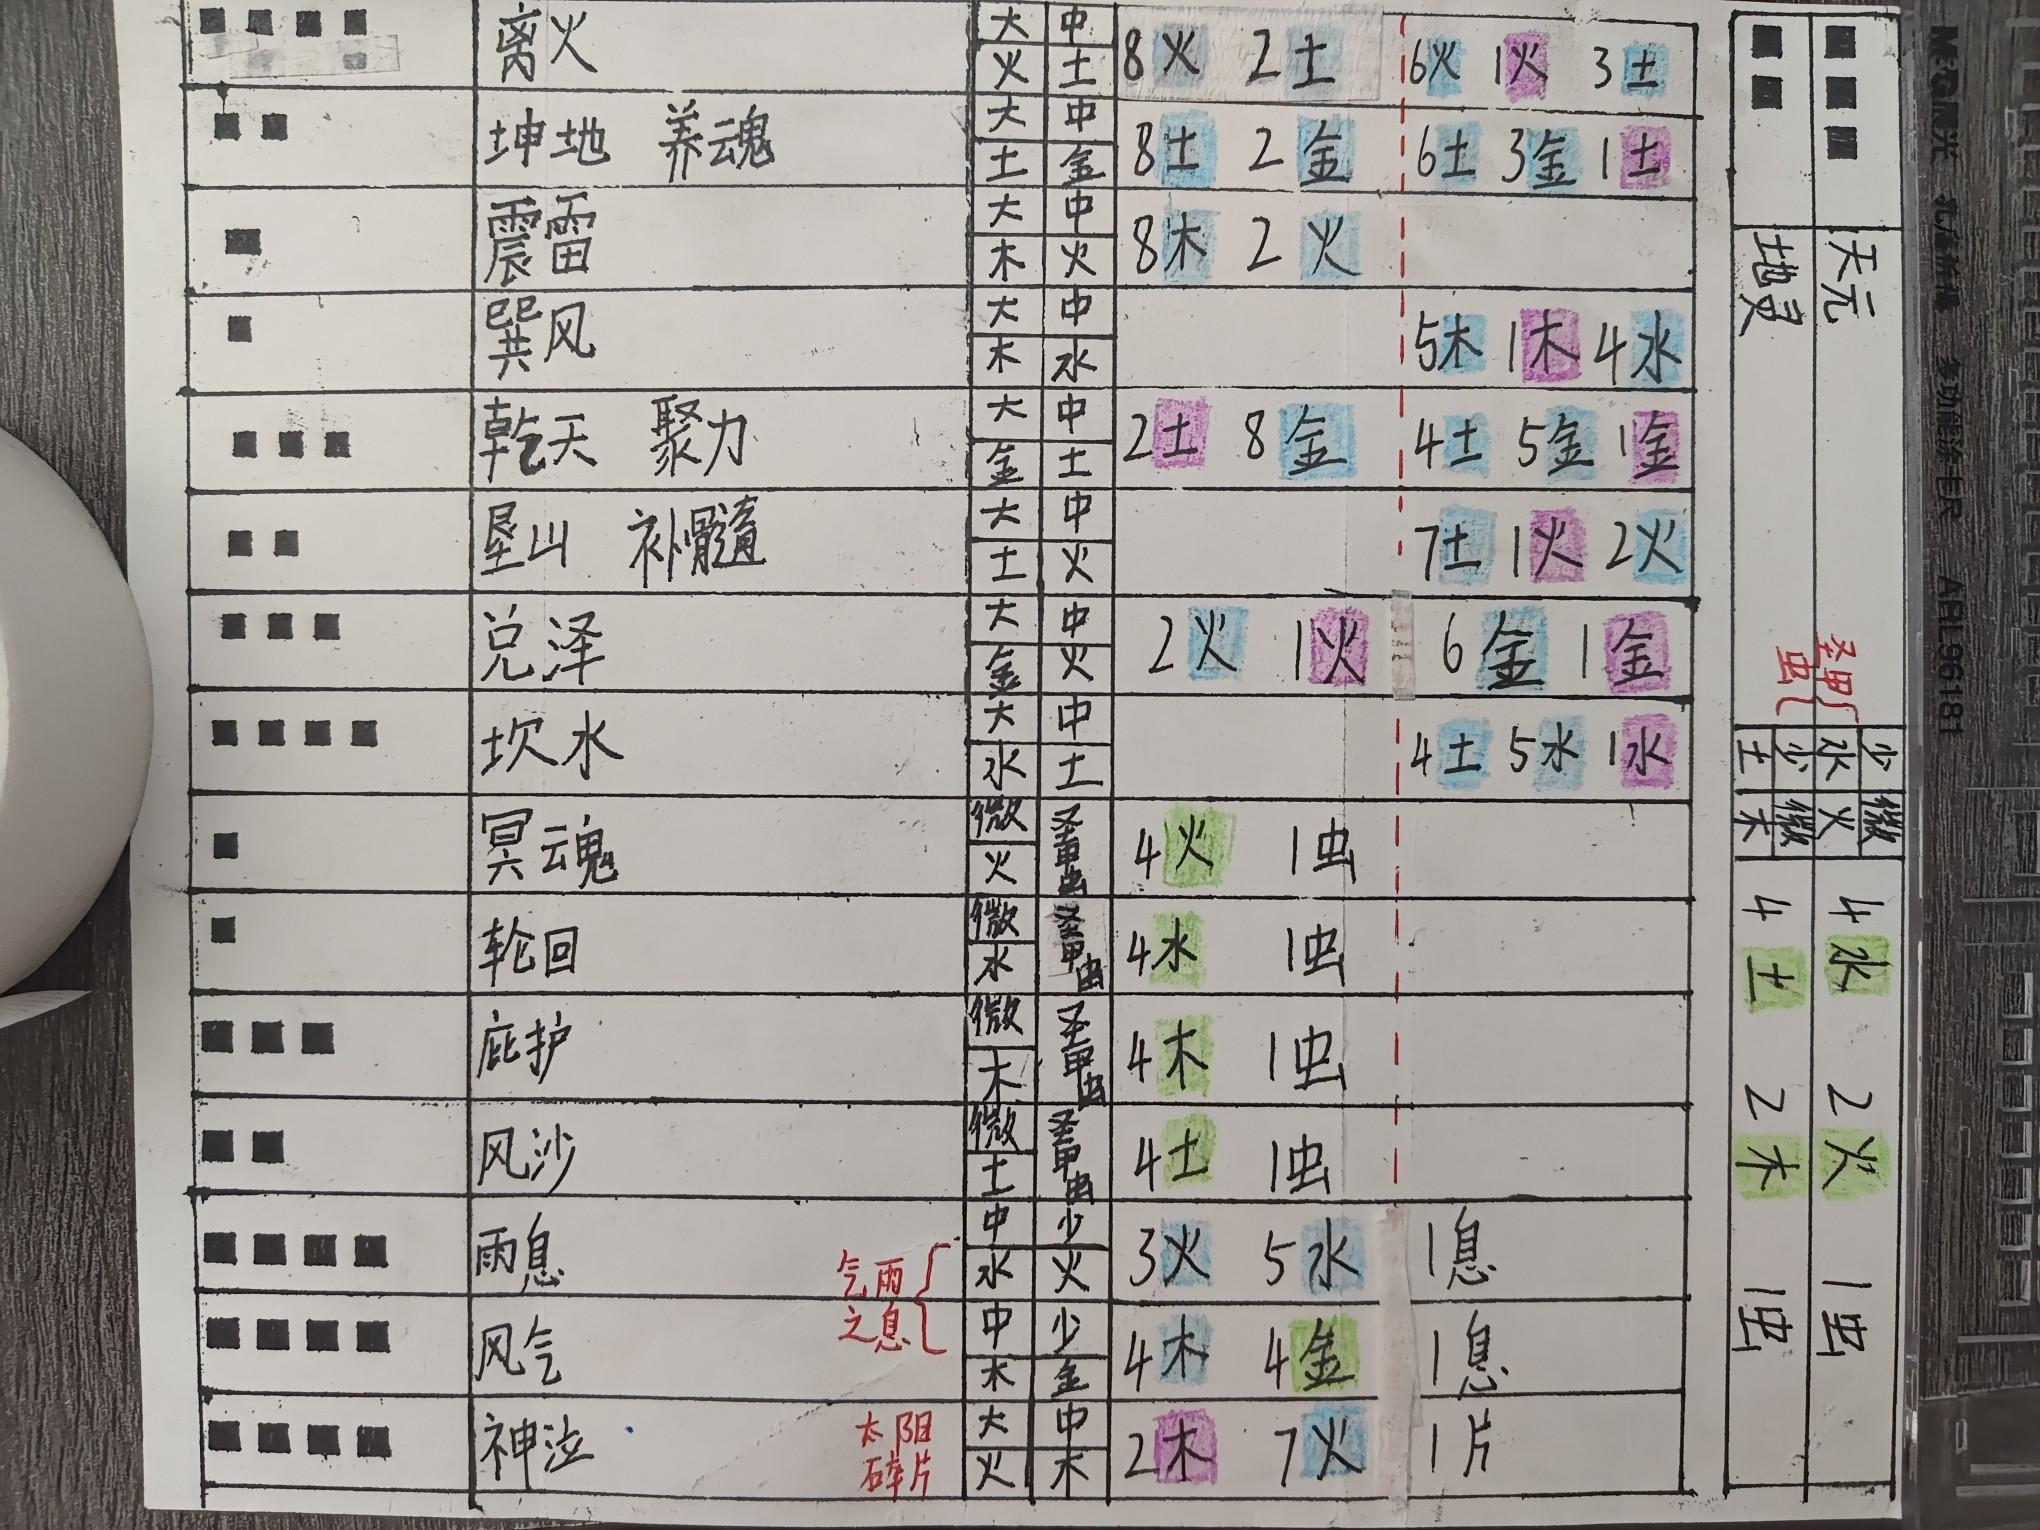 离火 大火 中土 8火 2土 6火 1火 3土
坤地 养魂 大土 中金 8土 2金 6土 3金 1土
震雷 大木 中火 8木 2火
巽风 大木 中水 5木 1木 4水
乾天 聚力 大金 中土 2土 8金 4土 5金 1金
垦山 补髓 大土 中火 7土 1火 2火
兑泽 大金 中火 2火 1火 6金 1金
坎水 大水 中土 4土 5水 1水
冥魂 微火 圣甲虫 4火 1虫
轮回 微水 圣甲虫 4水 1虫
庇护 微木 圣甲虫 4木 1虫
风沙 微土 圣甲虫 4土 1虫
雨息 中水 少火 3火 5水 1息
气雨之息
风气 中木 少金 4木 4金 1息
神泣 太阳碎片 大火 中木 2木 7火 1片
天元 少水 微火 4水 2火 1虫
圣甲虫
地灵 少土 微木 4土 2木 1虫
M&G晨光 多功能 ARL96181